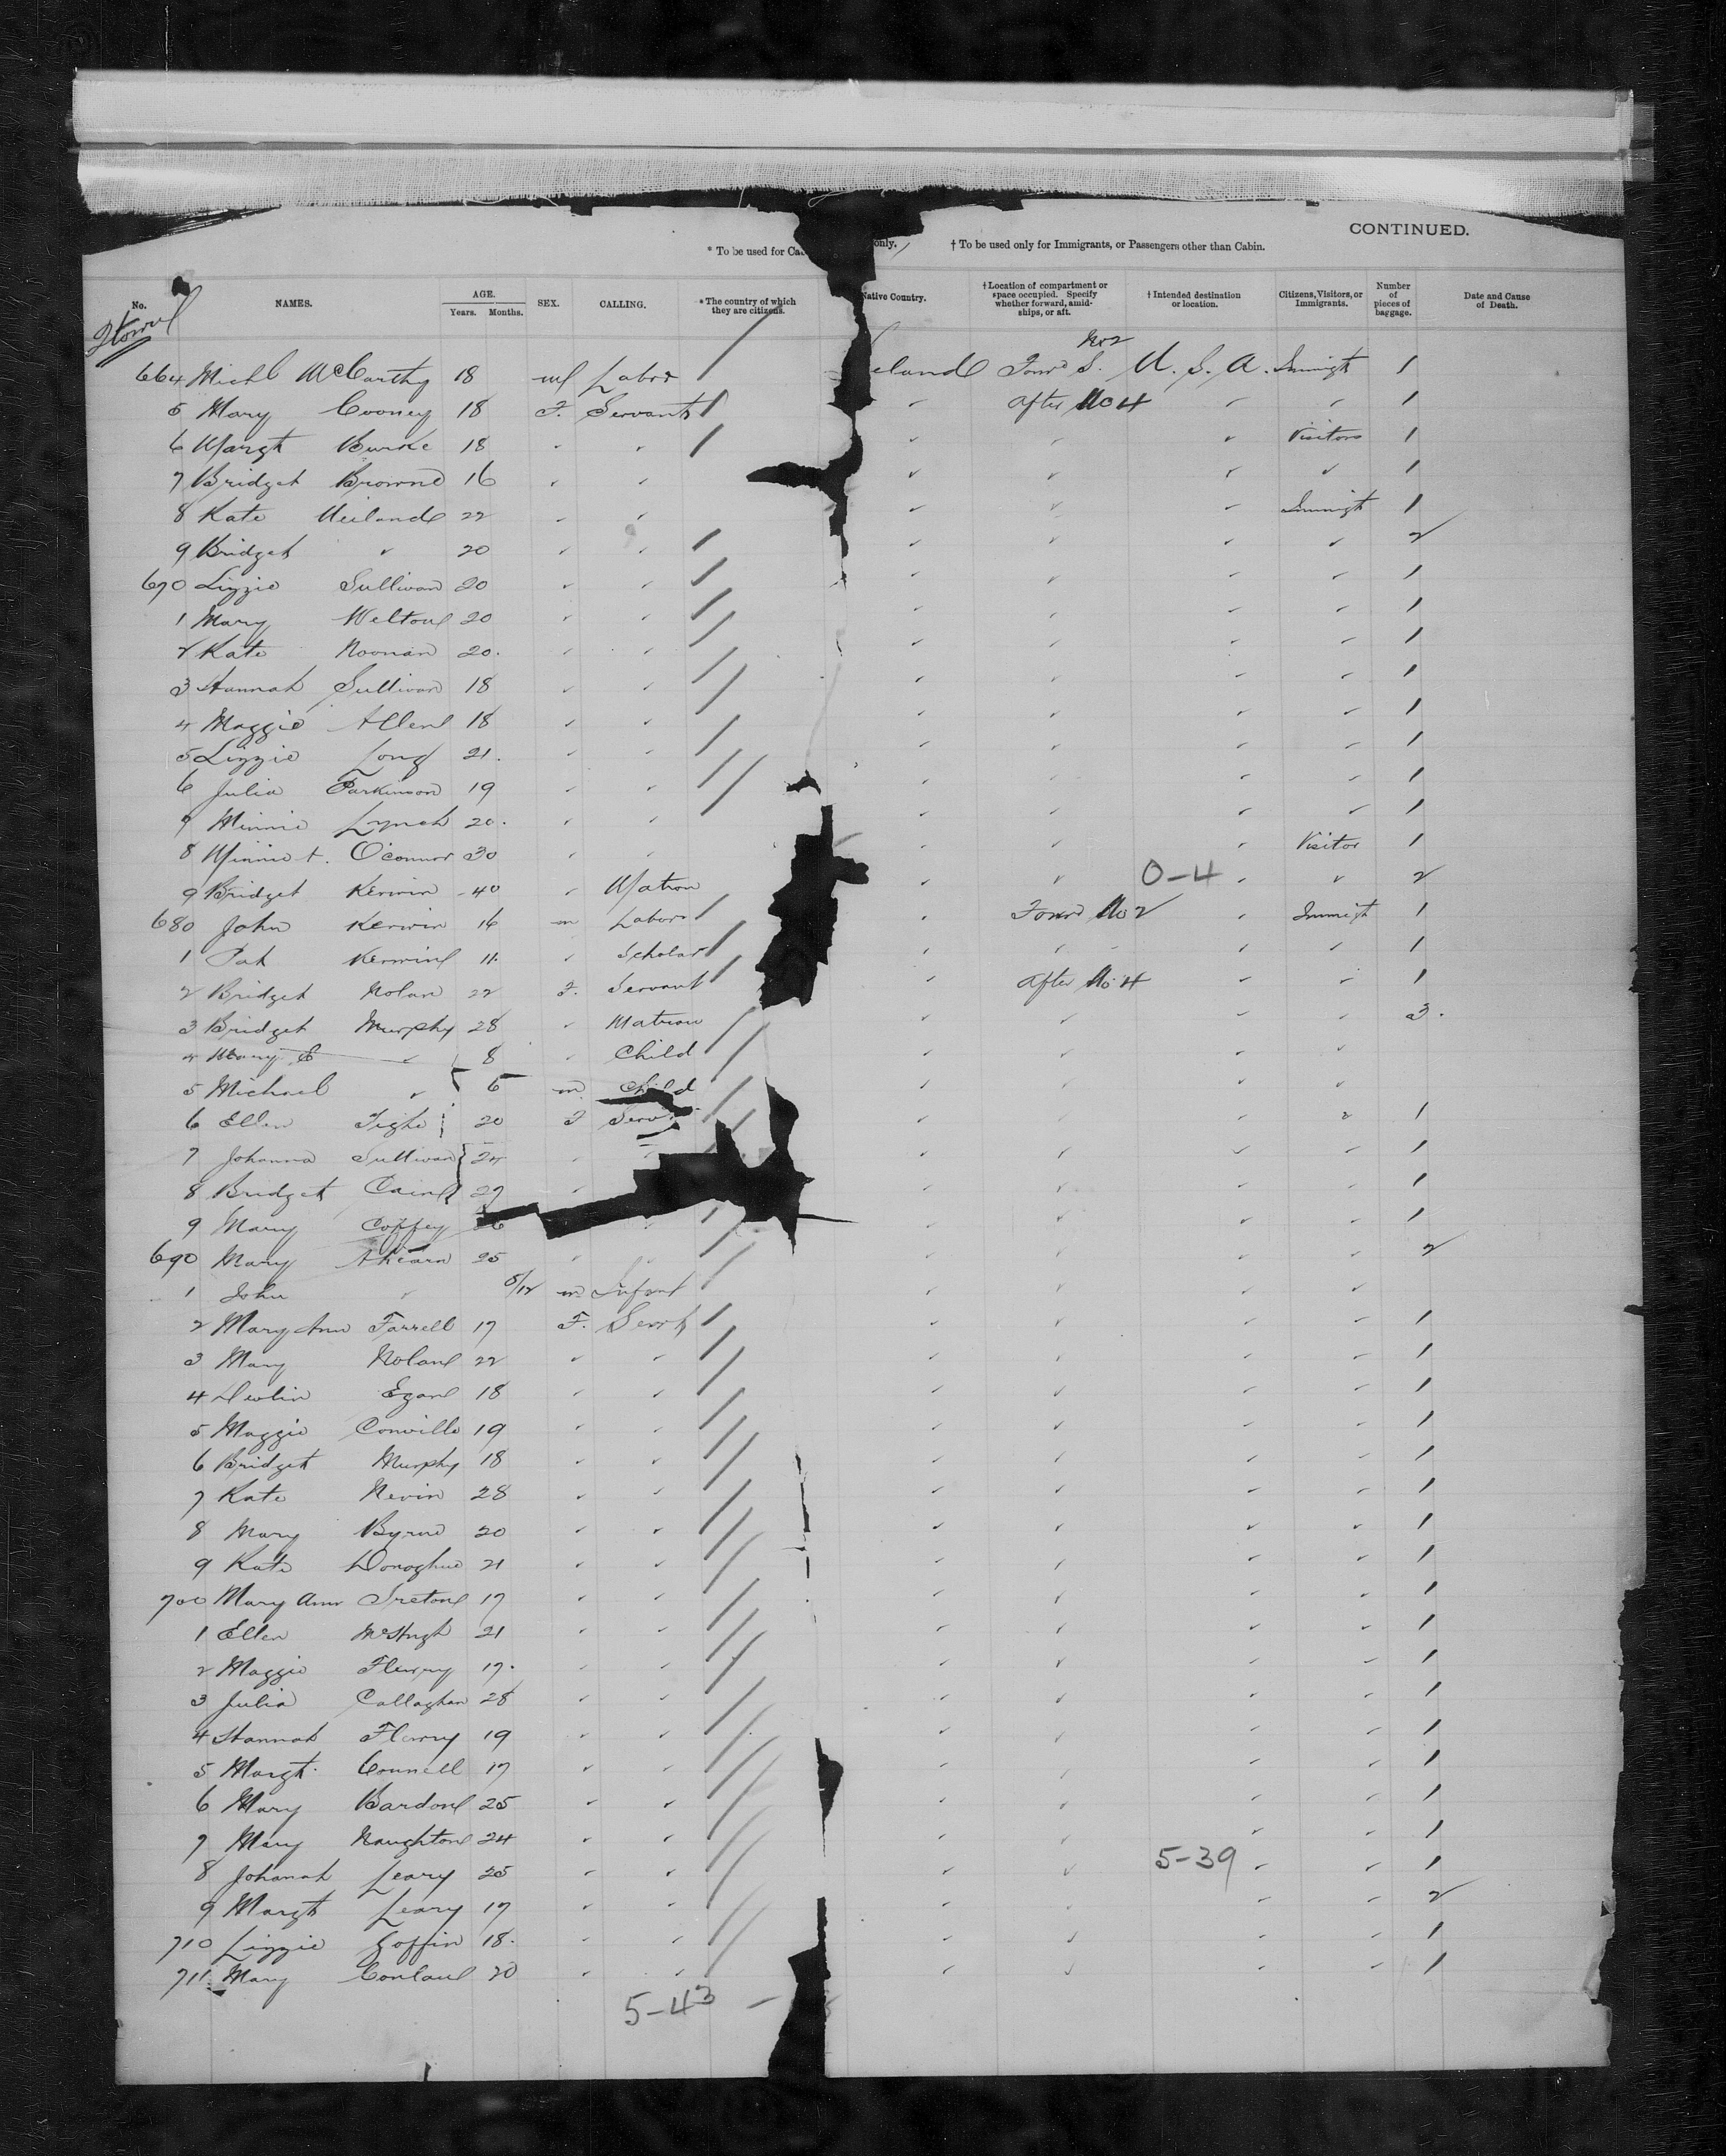 CONTINUED.
* To be used for Ca only. † To be used only for Immigrants, or Passengers other than Cabin.
No. NAMES. AGE. Years. Months. SEX. CALLING. *The country of which they are citizens. Native Country. †Location of compartment or space occupied. Specify whether forward, amidships, or aft. †Intended destination or location. Citizens, Visitors, or Immigrants. Number of pieces of baggage. Date and Cause of Death.
No 2
664 Michl McCarthy 18 m Labor eland Forwd S. U. S. A. Immigt 1
5 Mary Cooney 18 F. Servant after No 4 1
6 Margt Burke 18 Visitors 1
7 Bridget Browne 16 1
8 Kate 22 Immigt 1
9 Bridget " 20 2
670 Lizzie Sullivan 20 1
1 Mary Welton 20 1
2 Kate Noonan 20. 1
3 Hannah Sullivan 18 1
4 Maggie Allen 18 1
5 Lizzie Long 21. 1
6 Julia Parkinson 19 1
7 Minnie Lynch 20. 1
8 Minnie t. O'Connor 30 Visitor 1
9 Bridget Kerwin 40 Matron 0-4 2
680 John Kerwin 16 m Labor Forwd No 2 Immigt 1
1 Pat Kerwin 11. Scholar 1
2 Bridget Nolan 22 F. Servant after No. 4 1
3 Bridget Murphy 28 Matron 3.
4 Mary E " 8 Child
5 Michael " 6 m Child
6 Ellen Tighe 20 F Serv 1
7 Johanna Sullivan 24 1
8 Bridget Cain 27 1
9 Mary Coffey 26 1
690 Mary Ahearn 25 2
1 John " 5/12 m Infant
2 Mary Ann Farrell 17 F. Servt 1
3 Mary Nolan 22 1
4 Egan 18 1
5 Maggie Conville 19 1
6 Bridget Murphy 18 1
7 Kate Nevin 28 1
8 Mary Byrne 20 1
9 Kate Donoghue 21 1
700 Mary Ann 17 1
1 Ellen McHugh 21 1
2 Maggie Fleury 17. 1
3 Julia Callaghan 28 1
4 Hannah Flurry 19 1
5 Margt. Connell 17 1
6 Mary Bardon 25 1
7 Mary Naughton 24 1
8 Johanah Leary 25 5-39 1
9 Margt Leary 17 2
710 Lizzie Goffin 18. 1
711. Mary Conlan 20 1
5-43